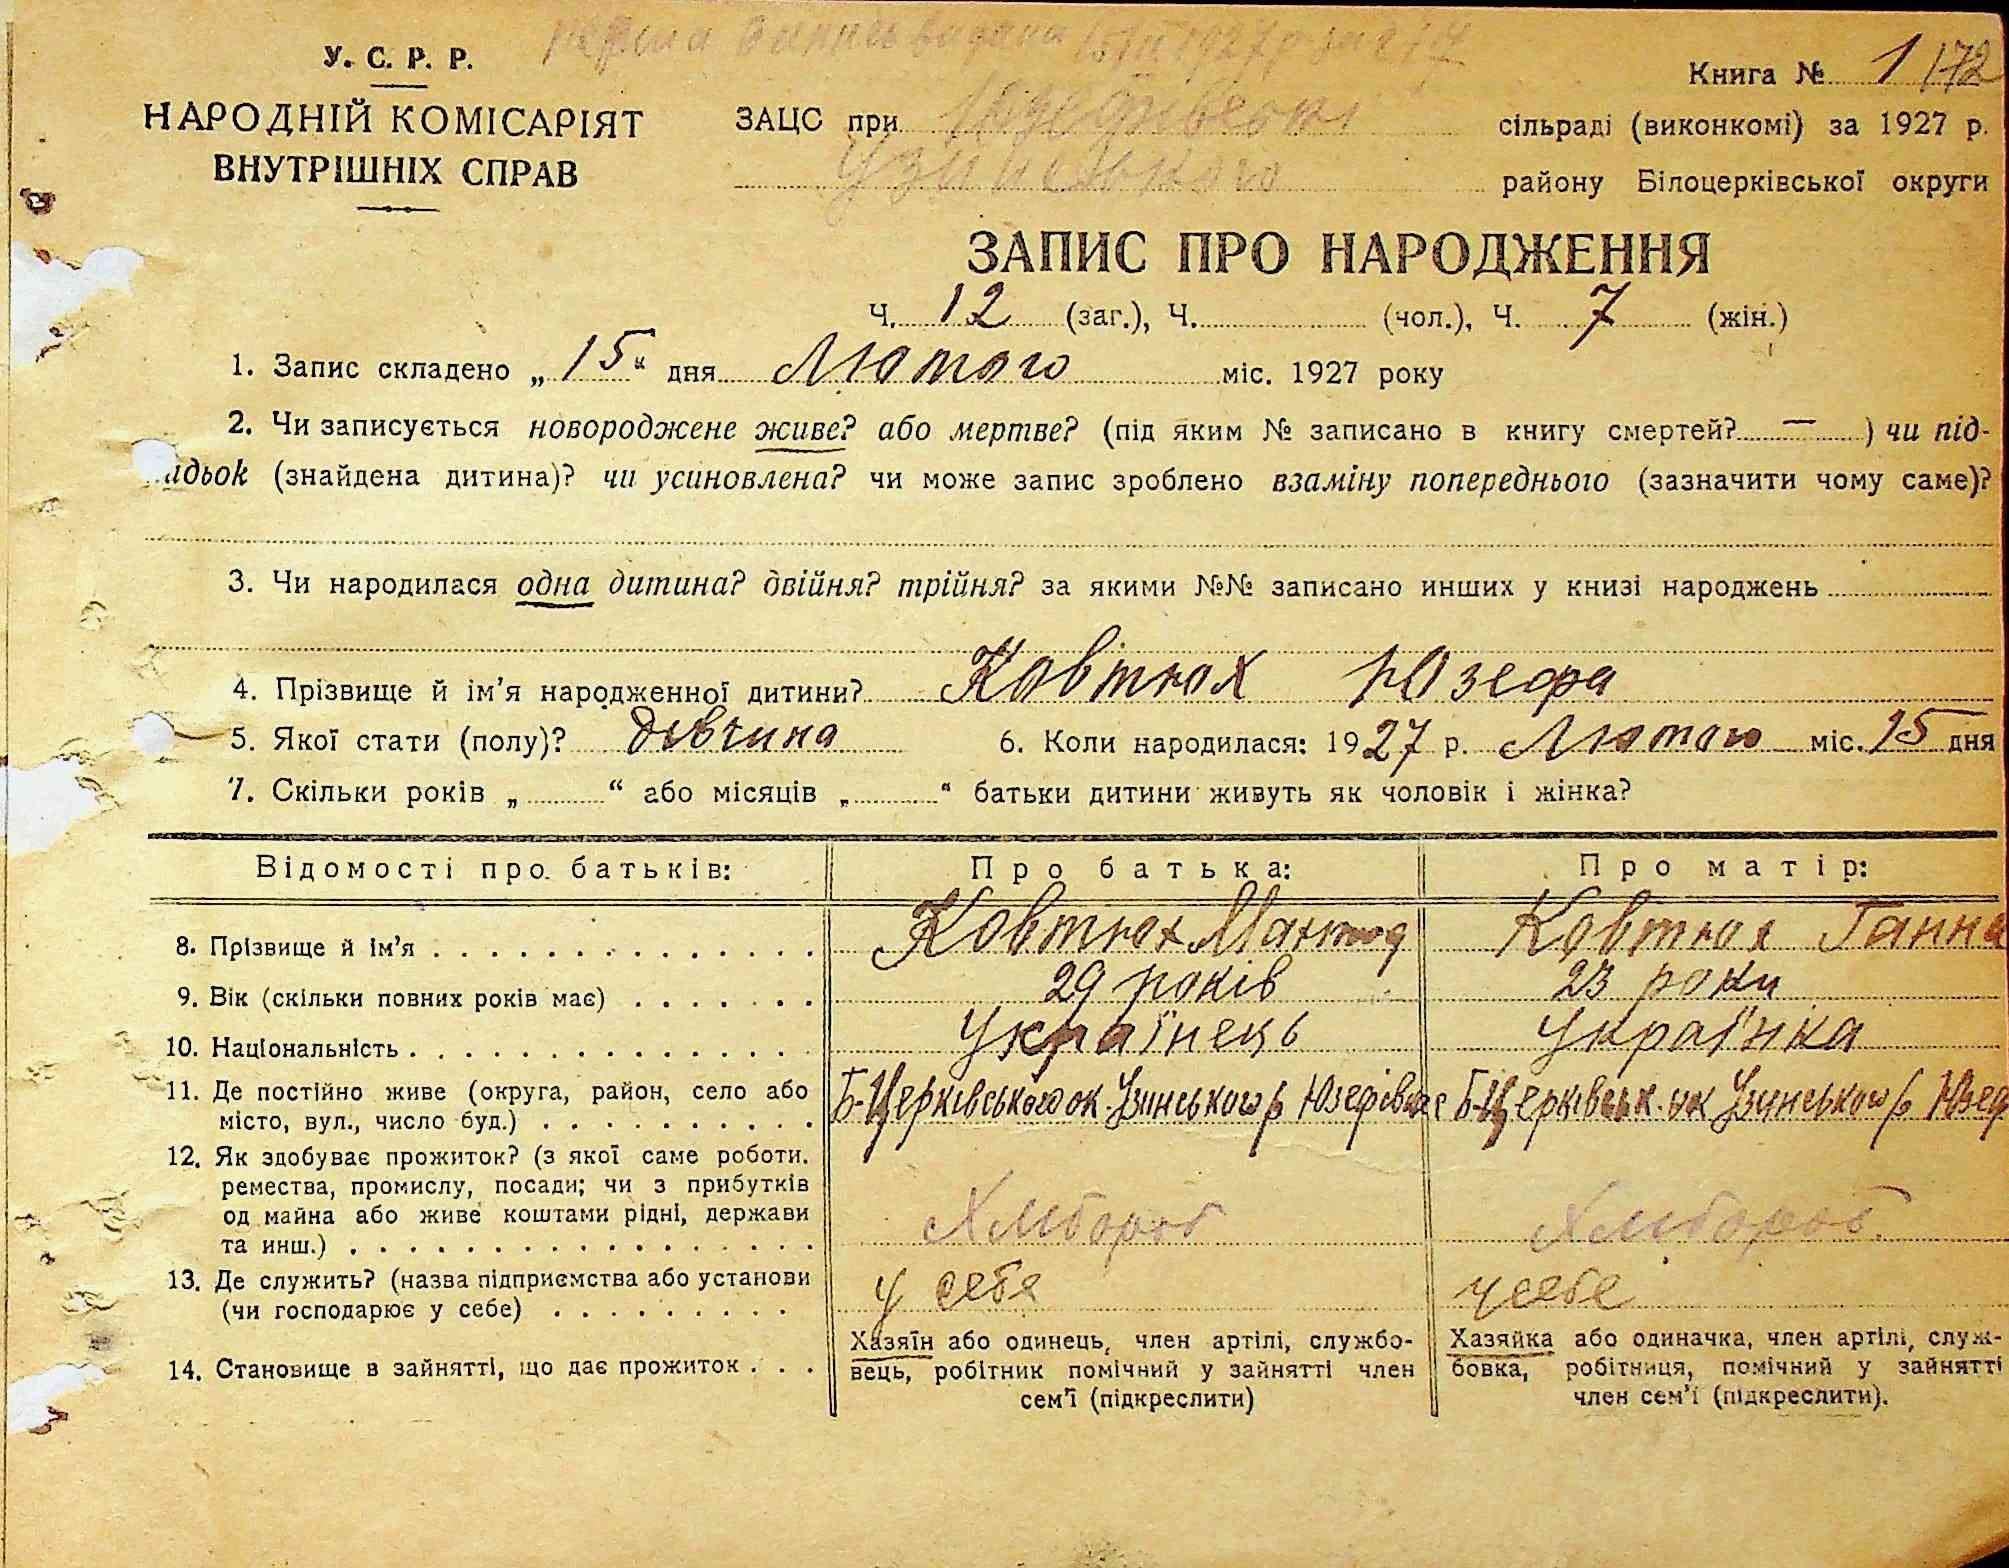 У. С. Р. Р.
НАРОДНІЙ КОМІСАРІЯТ
ВНУТРІШНІХ СПРАВ
Книга № 1 172
ЗАЦС при Юзефівські сільраді (виконкомі) за 1927 р.
Узинського району Білоцерківської округи
ЗАПИС ПРО НАРОДЖЕННЯ
Ч. 12 (заг.), Ч. (чол.), Ч. 7 (жін.)
1. Запис складено „15“ дня Лютого міс. 1927 року
2. Чи записується новороджене живе? або мертве? (під яким № записано в книгу смертей? — ) чи під-
идьок (знайдена дитина)? чи усиновлена? чи може запис зроблено взаміну попереднього (зазначити чому саме)?
3. Чи народилася одна дитина? двійня? трійня? за якими №№ записано инших у книзі народжень
4. Прізвище й ім’я народженної дитини? Ковтюх Юзефа
5. Якої стати (полу)? дівчина 6. Коли народилася: 1927 р. Лютого міс. 15 дня
7. Скільки років „ “ або місяців „ “ батьки дитини живуть як чоловік і жінка?
Відомості про батьків: Про батька: Про матір:
8. Прізвище й ім’я . . . . . . . . . . . . . . Ковтюх Ковтюх Ганна
9. Вік (скільки повних років має) . . . . . . . 29 років 23 роки
10. Національність . . . . . . . . . . . . . . . Українець Українка
11. Де постійно живе (округа, район, село або
місто, вул., число буд.) . . . . . . . . . . Б-Церківського ок. Узинського р Юзефівка Б-Церківськ. ок Узинського р Юзеф
12. Як здобуває прожиток? (з якої саме роботи.
ремества, промислу, посади; чи з прибутків
од майна або живе коштами рідні, держави
та инш.) . . . . . . . . . . . . . . . . . Хлібороб Хлібороб
13. Де служить? (назва підприємства або установи
(чи господарює у себе) . . . . . . . . . у себе у себе
14. Становище в зайнятті, що дає прожиток . . .
Хазяїн або одинець, член артілі, службо-
вець, робітник помічний у зайнятті член
сем’ї (підкреслити)
Хазяйка або одиначка, член артілі, служ-
бовка, робітниця, помічний у зайнятті
член сем’ї (підкреслити).